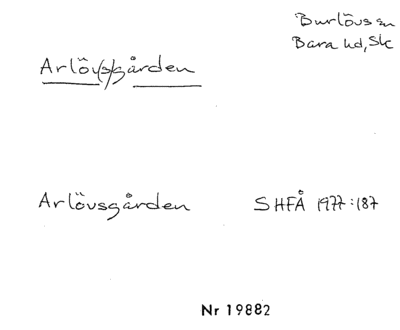 Burlövs sn
Bara hd, Sk
Arlöv(s)gården
Arlövsgården SHFÅ 1977:187
Nr 19882